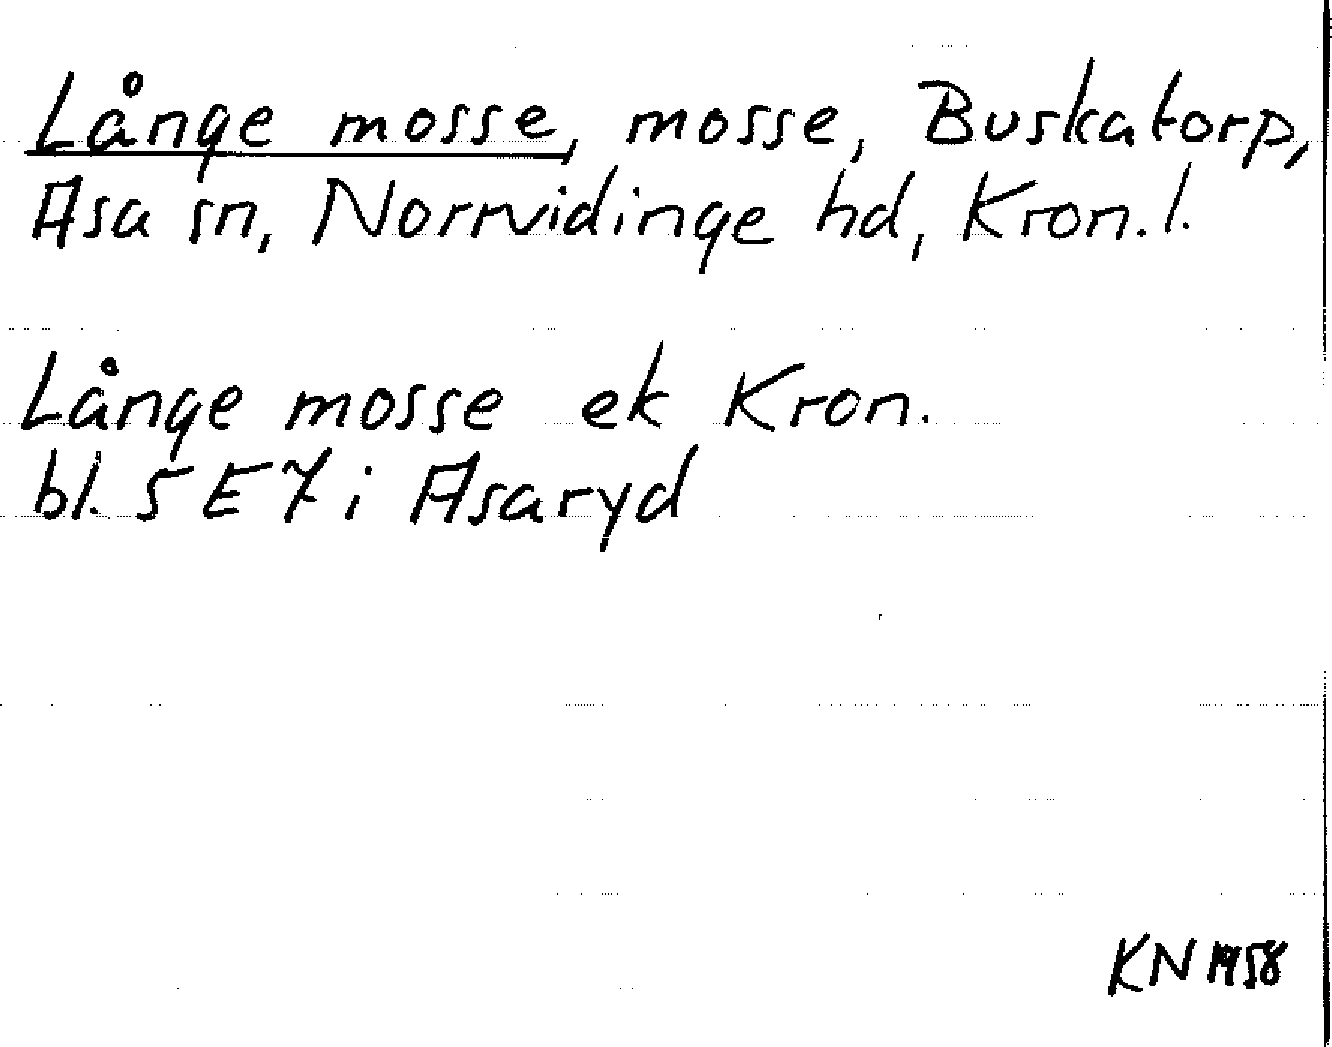 Långe mosse, mosse, Buskatorp,
Asa sn, Norrvidinge hd, Kron.l.
Långe mosse ek Kron.
bl. 5 E 7 i Asaryd
KN 1958